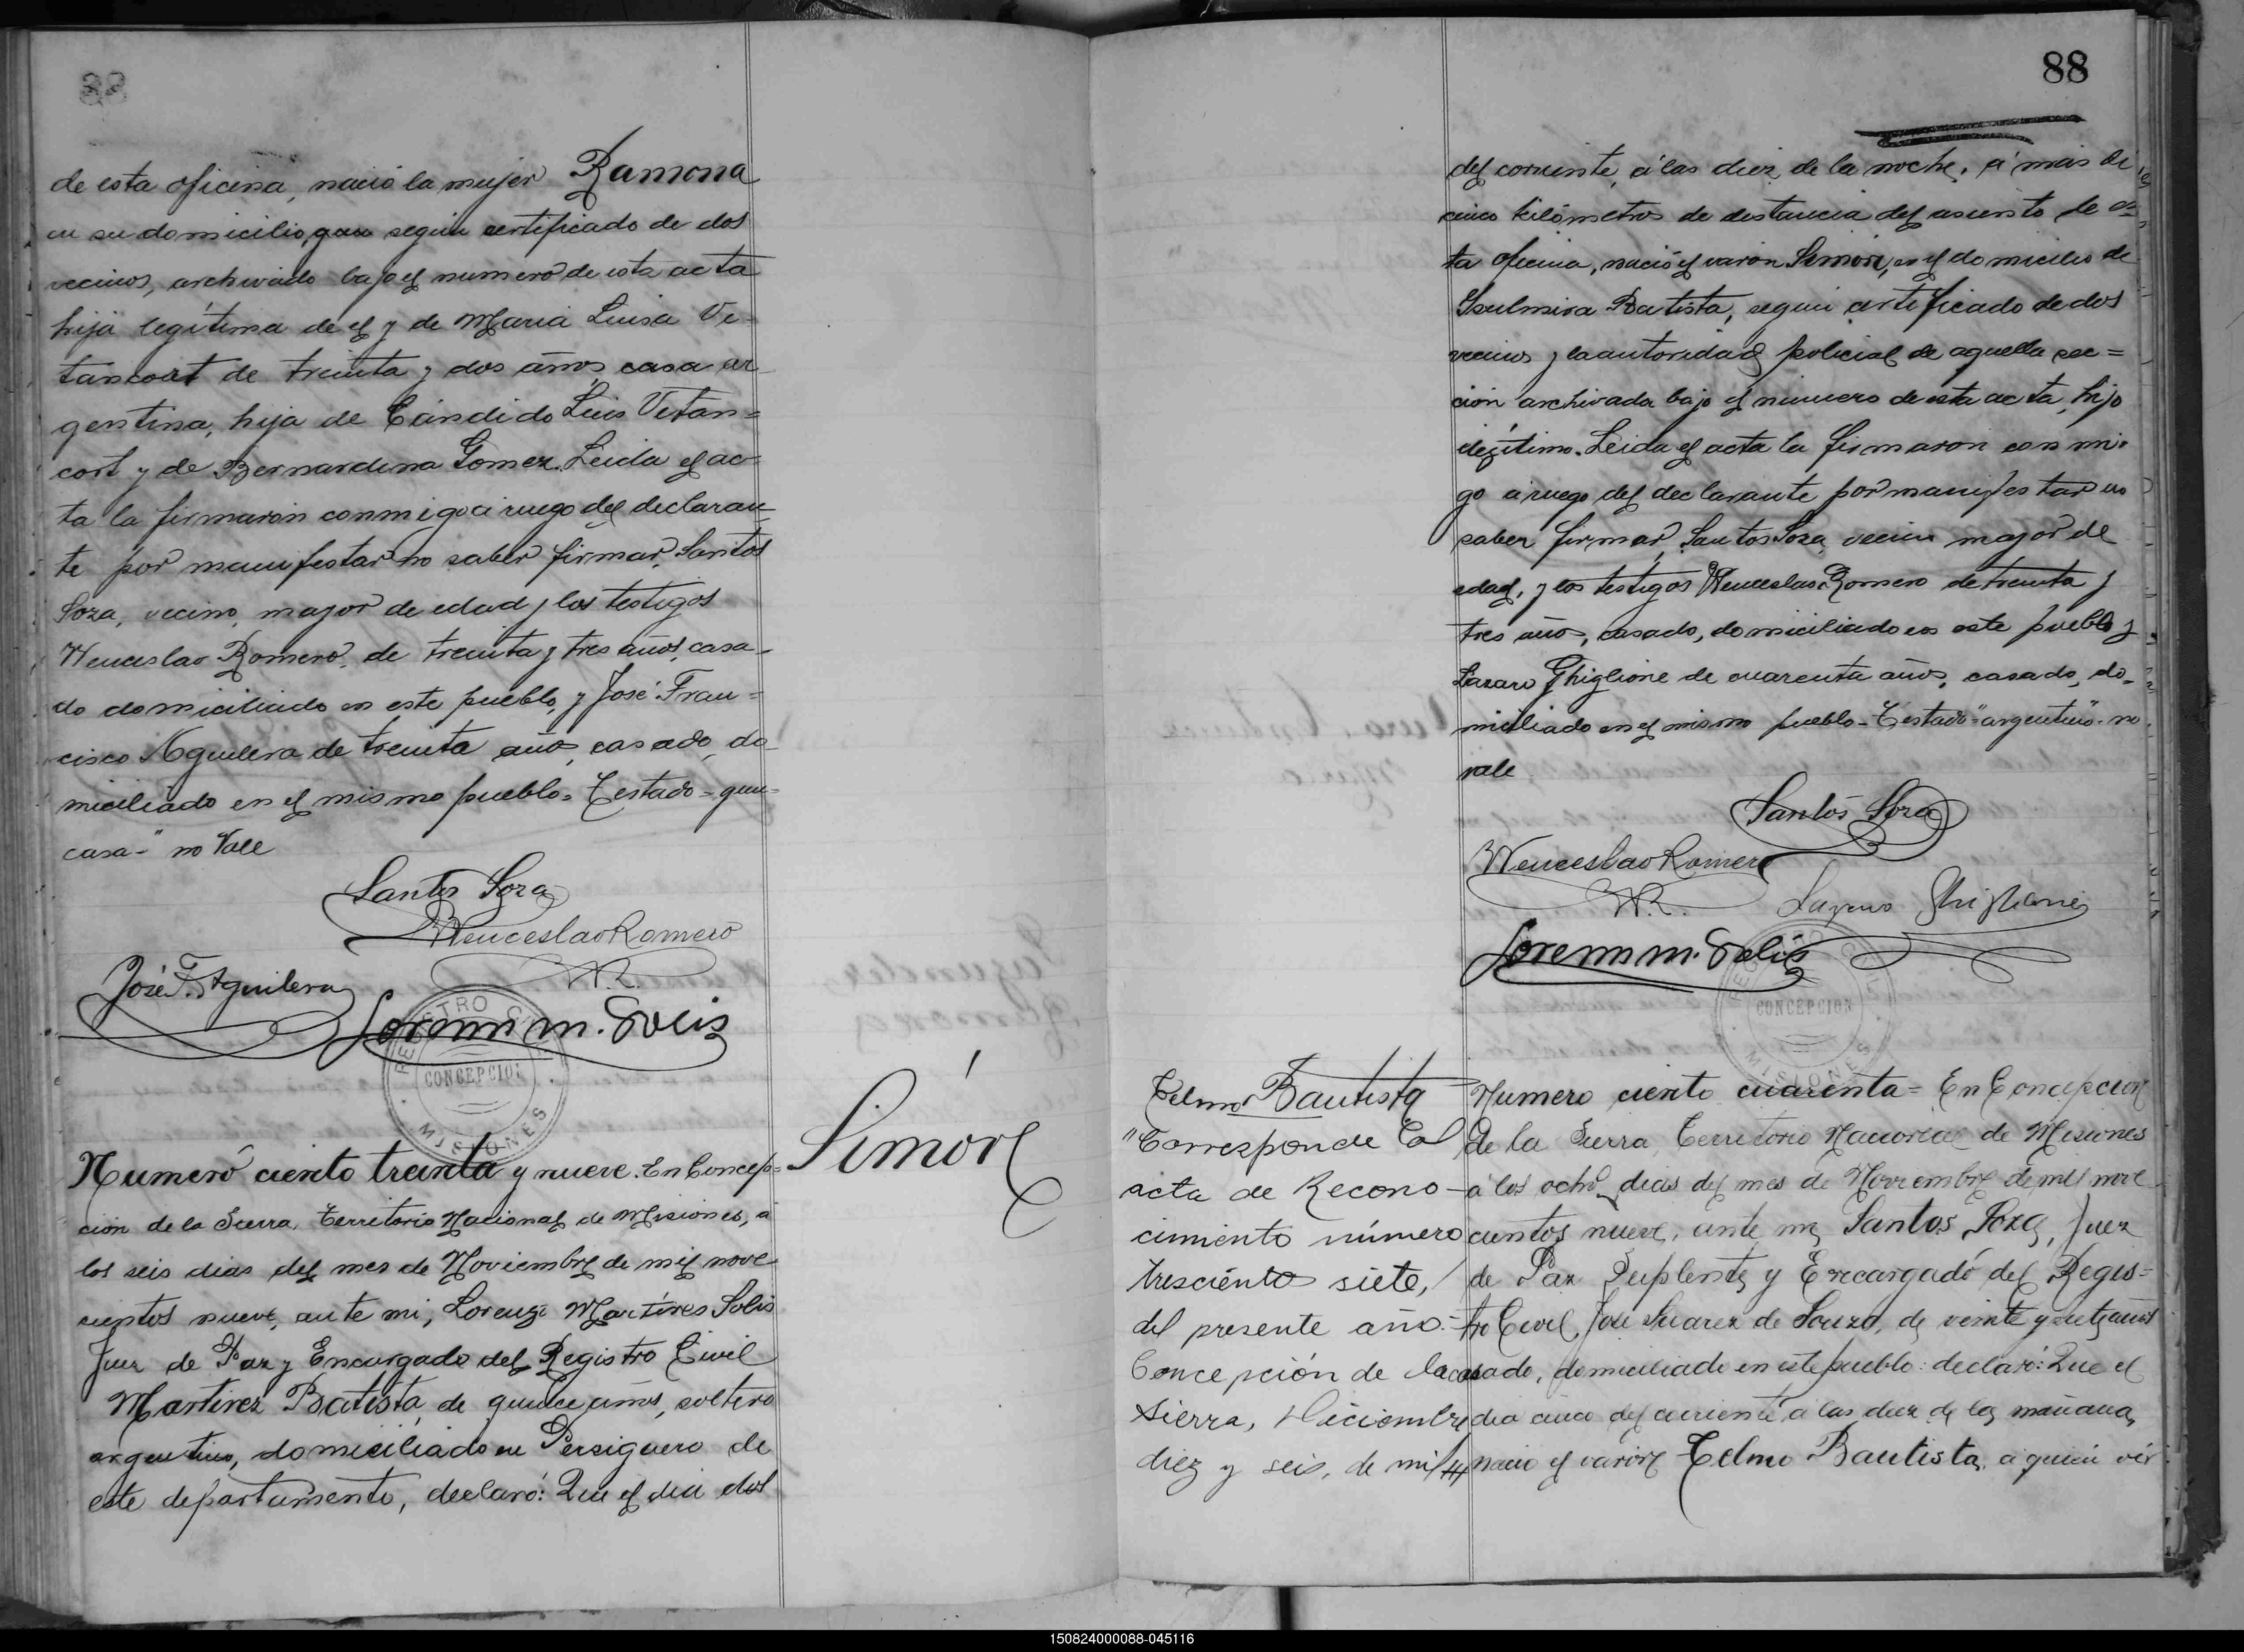 de esta oficina, nació la mujer Ramona
en su domicilio, que según certificado de dos
vecinos, archivado bajo el numero de esta acta
hija legítima de el y de Maria Luisa Ve=
tancourt de treinta y dos años casa ar
gentina, hija de Cándido Luis Vetan=
cort y de Bernardina Gomez. Leida el ac=
ta la firmaron conmigo a ruego del declaran
te por manifestar no saber firmar, Santos
Soza, vecino, mayor de edad y los testigos
Wenceslao Romero, de treinta y tres años, casa-
do domiciliado en este pueblo, y José Fran=
cisco Aguilera de treinta años, casado, do-
miciliado en el mismo pueblo= Testado = que=
casa-" no Vale
Santos Soza
Wenceslao Romero
W.R.
José F. Aguilera
Lorenzo M. Solis
REGISTRO CIVIL
CONCEPCION
MISIONES
Numero ciento treinta y nueve. En Concep=
ción de la Sierra, Territorio Nacional de Misiones, a
los seis dias del mes de Noviembre de mil nove
cientos nueve, ante mi, Lorenzo Martires Solis
Juez de Paz y Encargado del Registro Civil
Martirez Batista, de quince años, soltero
argentino, domiciliado en Persiguero de
este departamento, declaró: Que el dia dos
Simón
88
del corriente, á las diez de la noche, á más de
cinco kilómetros de distancia del asiento de es
ta oficina, nació el varon Simón, en el domicilio de
Batista, según certificado de dos
vecinos y la autoridad policial de aquella sec=
ción archivada bajo el número de esta acta, hijo
ilegítimo. Leida el acta la firmaron con mi-
go a ruego del declarante por manifestar no
saber firmar, Santos Soza, vecino mayor de
edad, y los testigos Wenceslao Romero de treinta y
tres años, casado, domiciliado en este pueblo y
Lazaro Ghiglione de cuarenta años, casado, do-
miciliado en el mismo pueblo- Testado "argentino"- no
vale
Santos Soza
Wenceslao Romero
W.R.
Lazaro Ghiglione
Lorenzo M. Solis
REGISTRO CIVIL
CONCEPCION
MISIONES
Telmo Bautista
"Corresponde al
acta de Recono-
cimiento número
trescientos siete,
del presente año.-
Concepción de la
Sierra, Diciembre
diez y seis, de mil
Numero ciento cuarenta= En Concepcion
de la Sierra, Territorio Nacional de Misiones
á los ocho dias del mes de Noviembre de mil nove
cientos nueve, ante mi, Santos Soza, Juez
de Paz Suplente y Encargado del Regis=
tro Civil, José Suarez de Souza, de veinte y siete años
casado, domiciliado en este pueblo: declaró: Que el
dia cinco del corriente á las diez de la mañana,
nació el varón Telmo Bautista, a quien vir
150824000088-045116